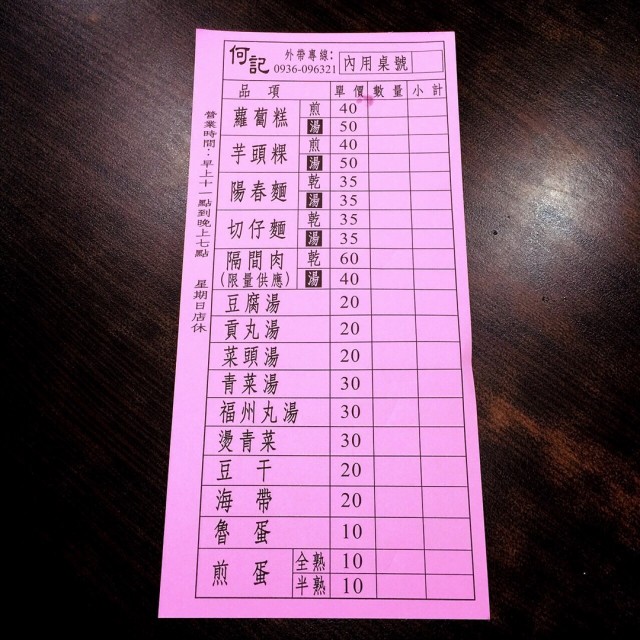 何記 外帶專線: 0936-096321 內用桌號
品項 單價 數量 小計
蘿蔔糕 煎 40
湯 50
芋頭粿 煎 40
湯 50
陽春麵 乾 35
湯 35
切仔麵 乾 35
湯 35
隔間肉 乾 60
(限量供應) 湯 40
豆腐湯 20
貢丸湯 20
菜頭湯 20
青菜湯 30
福州丸湯 30
燙青菜 30
豆干 20
海帶 20
魯蛋 10
煎蛋 全熟 10
半熟 10
營業時間：早上十一點到晚上七點 星期日店休